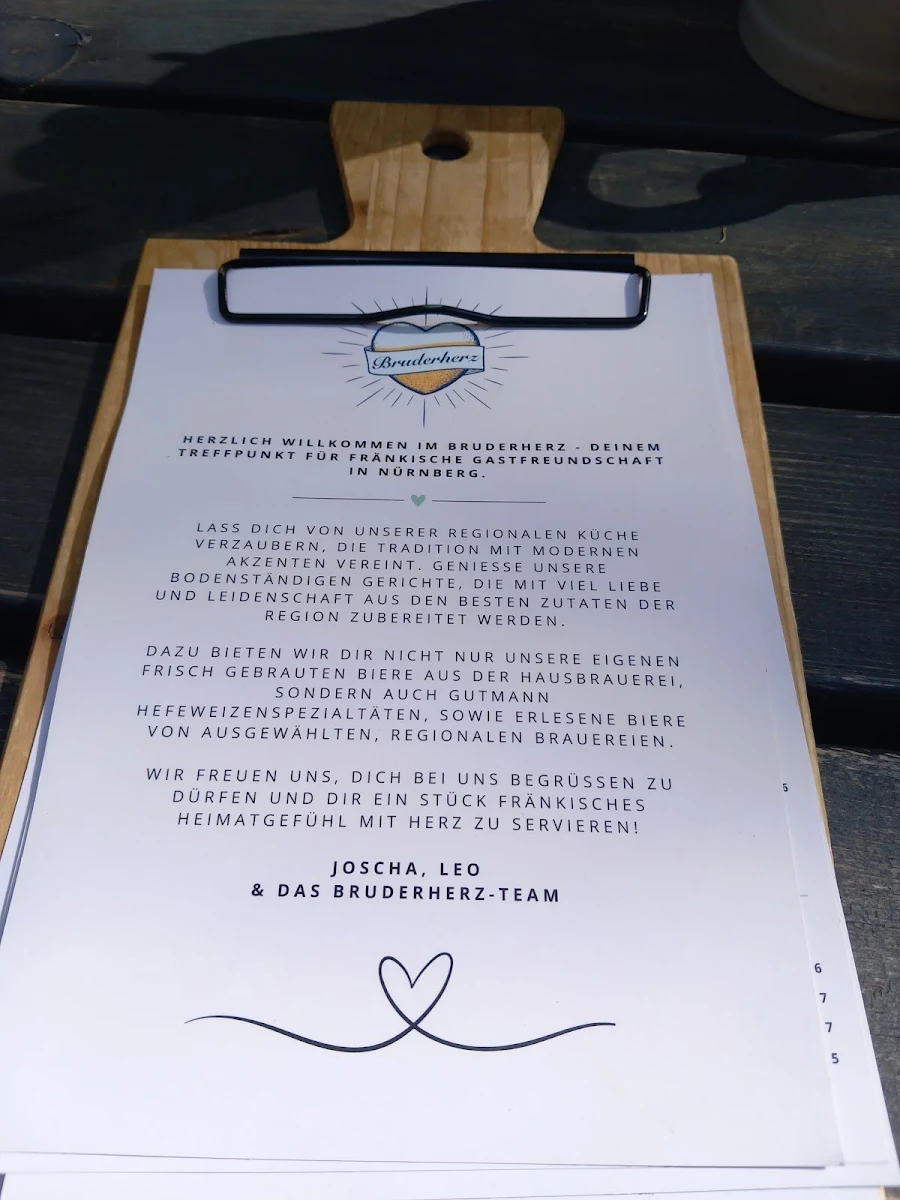 Bruderherz
HERZLICH WILLKOMMEN IM BRUDERHERZ - DEINEM
TREFFPUNKT FÜR FRÄNKISCHE GASTFREUNDSCHAFT
IN NÜRNBERG.
LASS DICH VON UNSERER REGIONALEN KÜCHE
VERZAUBERN, DIE TRADITION MIT MODERNEN
AKZENTEN VEREINT. GENIESSE UNSERE
BODENSTÄNDIGEN GERICHTE, DIE MIT VIEL LIEBE
UND LEIDENSCHAFT AUS DEN BESTEN ZUTATEN DER
REGION ZUBEREITET WERDEN.
DAZU BIETEN WIR DIR NICHT NUR UNSERE EIGENEN
FRISCH GEBRAUTEN BIERE AUS DER HAUSBRAUEREI,
SONDERN AUCH GUTMANN
HEFEWEIZENSPEZIALTÄTEN, SOWIE ERLESENE BIERE
VON AUSGEWÄHLTEN, REGIONALEN BRAUEREIEN.
WIR FREUEN UNS, DICH BEI UNS BEGRÜSSEN ZU
DÜRFEN UND DIR EIN STÜCK FRÄNKISCHES
HEIMATGEFÜHL MIT HERZ ZU SERVIEREN!
JOSCHA, LEO
& DAS BRUDERHERZ-TEAM
6
6
7
7
5